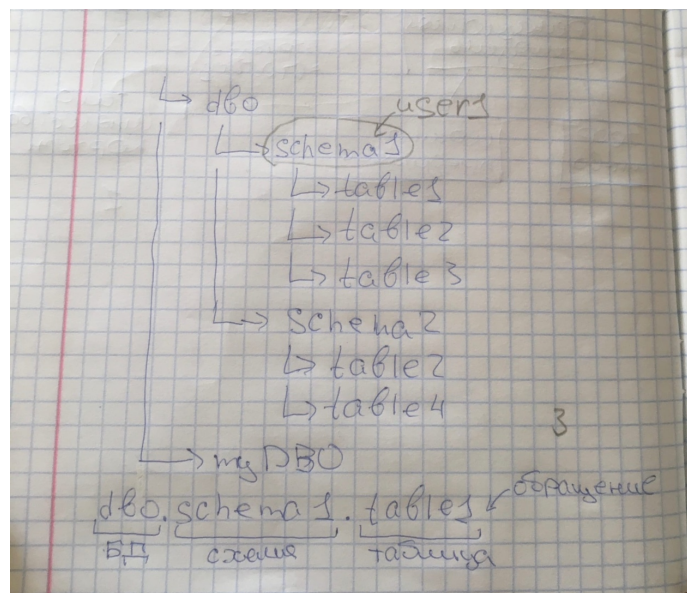 dbo
user1
schema1
table1
table2
table3
schema2
table2
table4
3
myDBO
dbo.schema1.table1
обращение
БД схема таблица